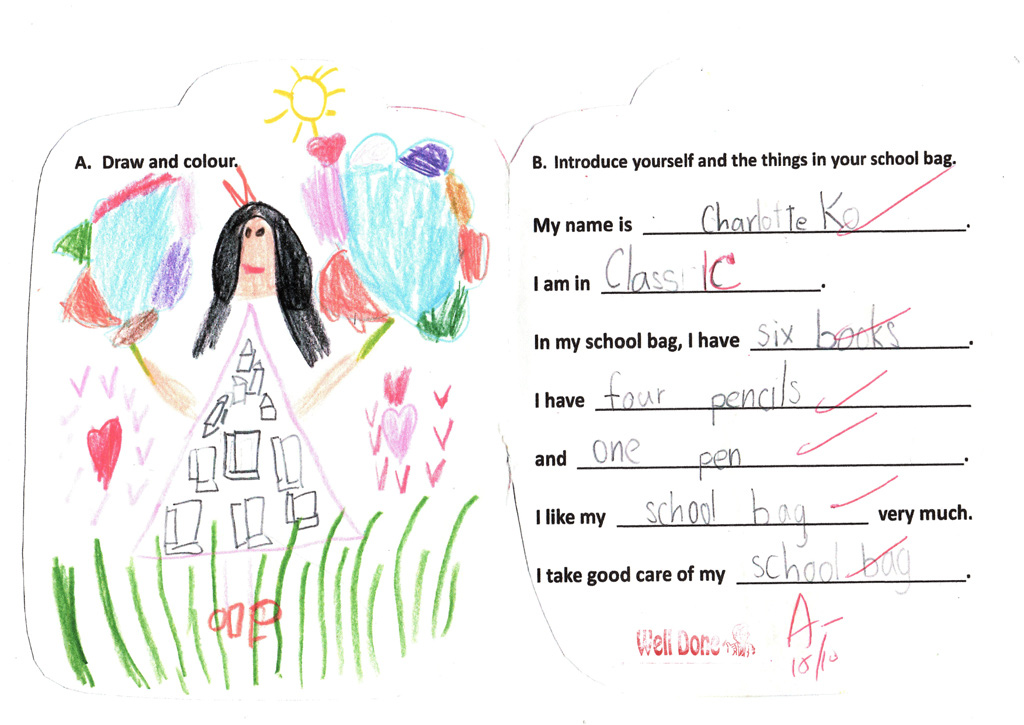 A. Draw and colour.
B. Introduce yourself and the things in your school bag.
My name is Charlotte Ko.
I am in Class 1C.
In my school bag, I have six books.
I have four pencils
and one pen.
I like my school bag very much.
I take good care of my school bag.
Well Done
A-